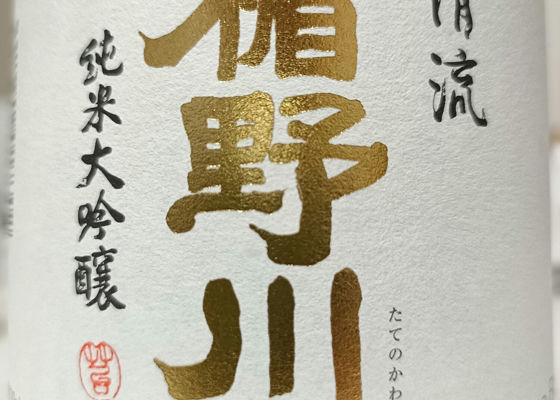 清流
楯野川
たてのかわ
純米大吟醸